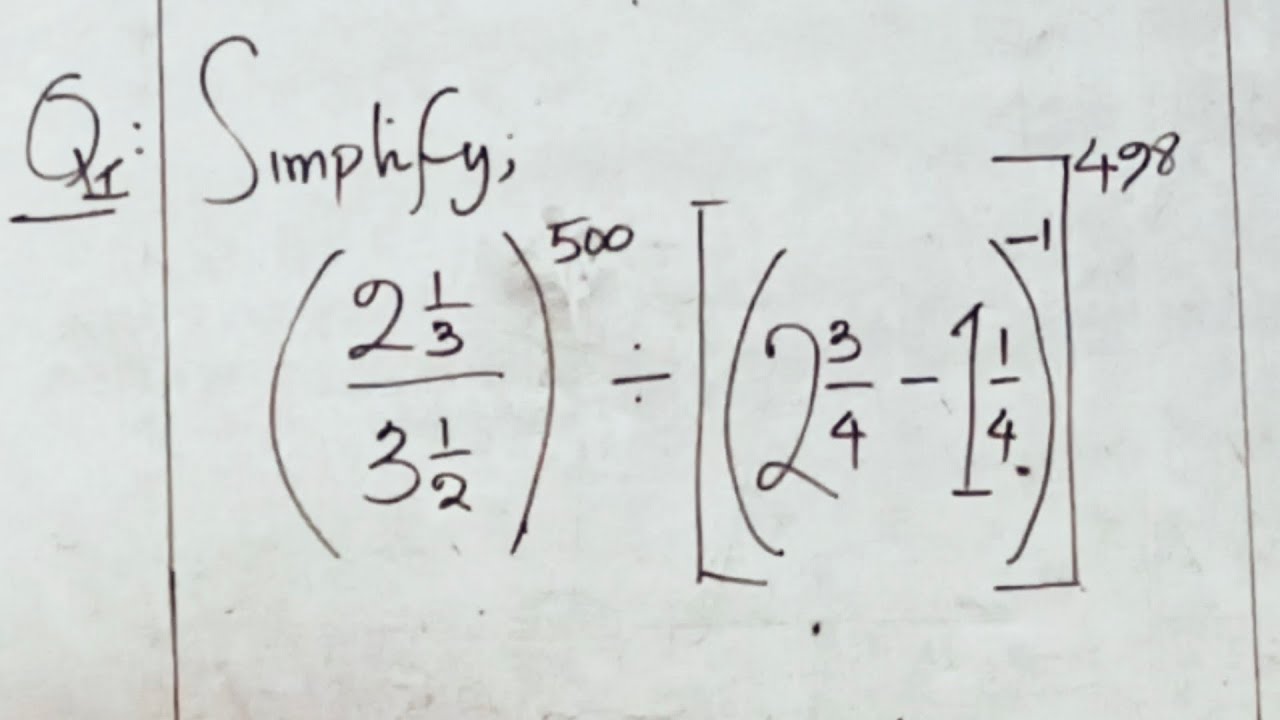 Q1: Simplify;
(2 1/3 / 3 1/2)^500 ÷ [(2 3/4 - 1 1/4)^-1]^498